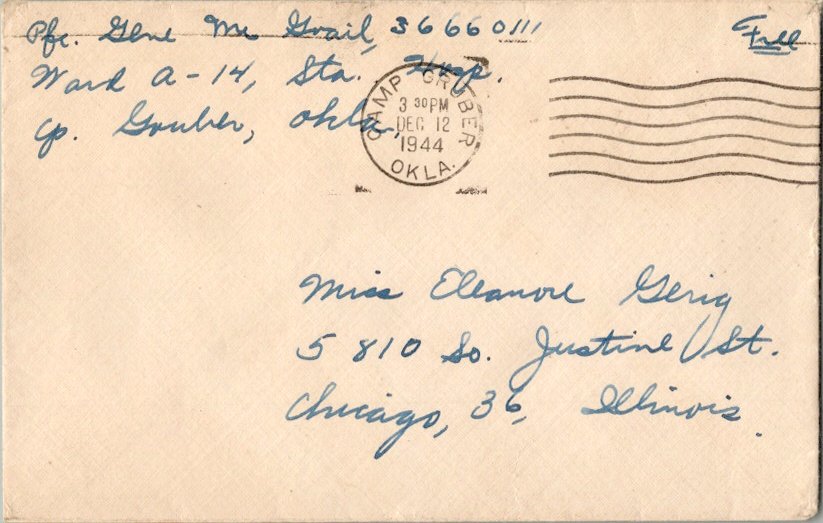 Pfc. Gene Mc Grail, 36660111
Free
Ward A-14, Sta. Hosp.
Cp. Gruber, Okla.
CAMP GRUBER
3 30 PM
DEC 12
1944
OKLA.
Miss Eleanore Gerig
5810 So. Justine St.
Chicago, 36, Illinois.